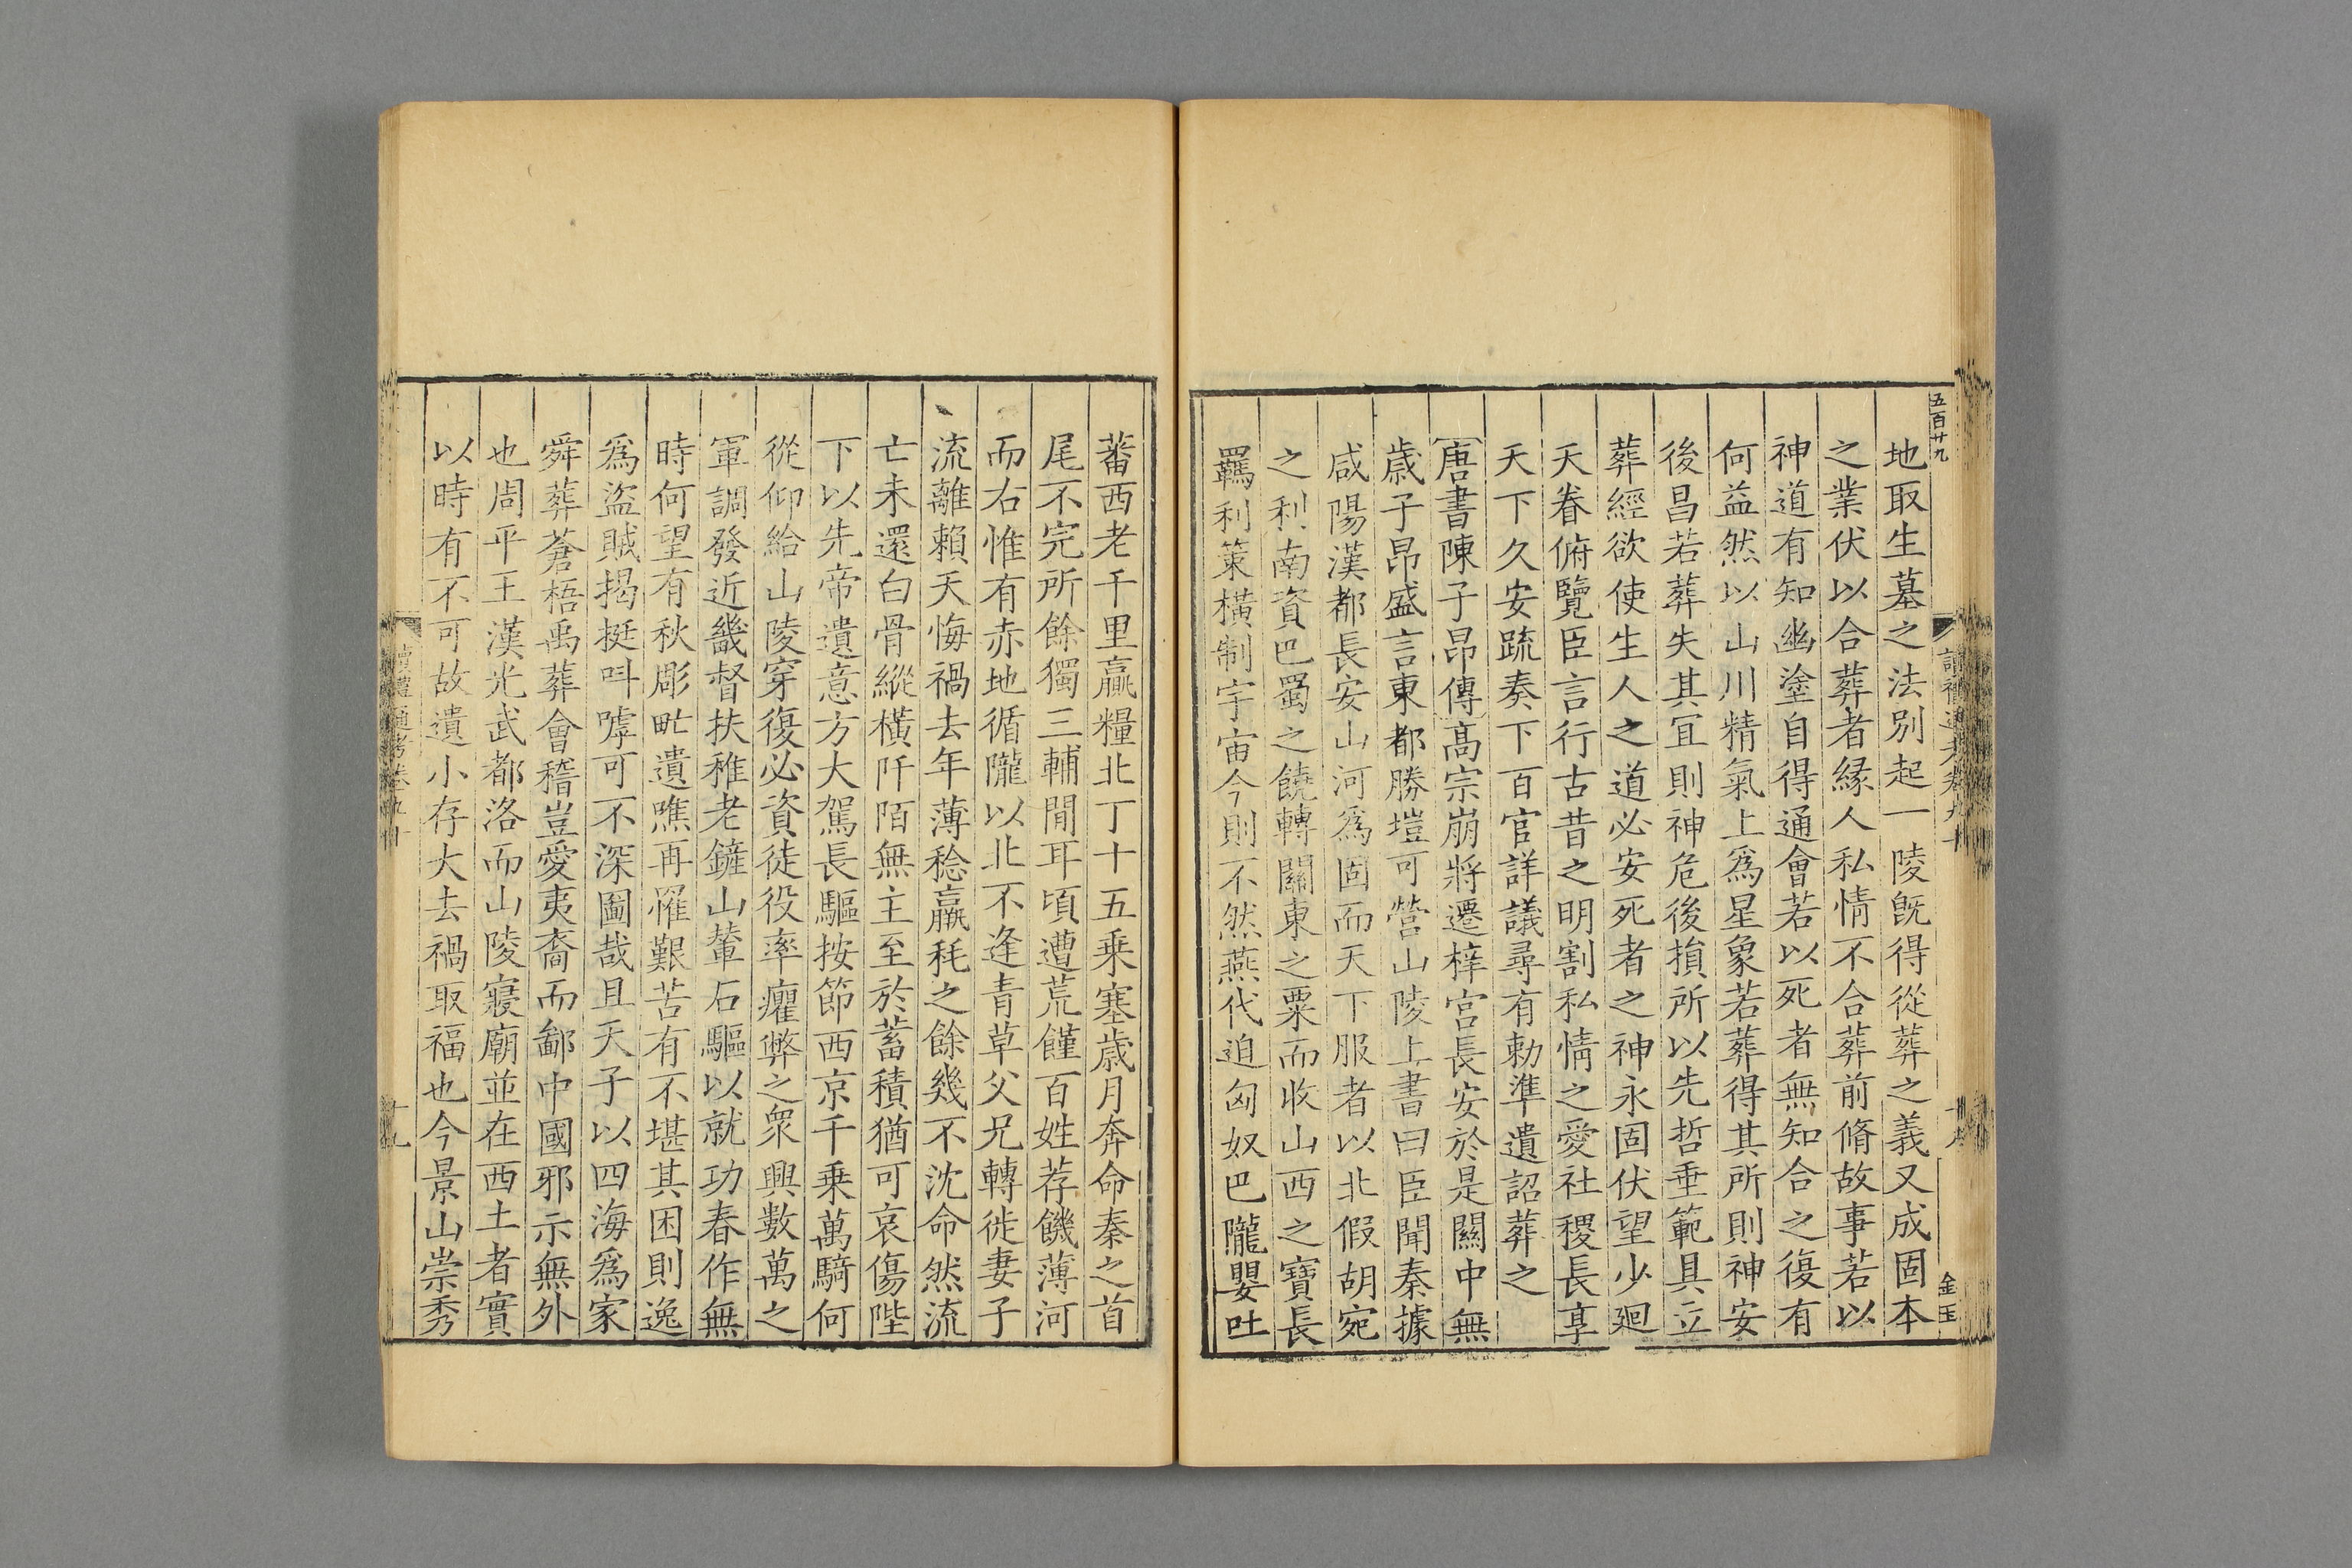 五百廿九
地取生墓之法別起一陵旣得從葬之義又成固本
之業伏以合葬者緣人私情不合葬前脩故事若以
神道有知幽塗自得通會若以死者無知合之復有
何益然以山川精氣上爲星象若葬得其所則神安
後昌若葬失其冝則神危後損所以先哲垂範具立
葬經欲使生人之道必安死者之神永固伏望少廻
天眷俯覽臣言行古昔之明割私情之愛社稷長享
天下久安疏奏下百官詳議尋有勅準遺詔葬之
唐書陳子昂傳髙宗崩將遷梓宮長安於是關中無
歲子昂盛言東都勝塏可營山陵上書曰臣聞秦據
咸陽漢都長安山河爲固而天下服者以北假胡宛
之利南資巴蜀之饒轉關東之粟而收山西之寶長
羈利策橫制宇宙今則不然燕代迫匈奴巴隴嬰吐
金玉
蕃西老千里贏糧北丁十五乗塞歲月奔命秦之首
尾不完所餘獨三輔閒耳頃遭荒饉百姓荐饑薄河
而右惟有赤地循隴以北不逢青草父兄轉徙妻子
流離賴天悔禍去年薄稔羸秏之餘幾不沈命然流
亡未還白骨縱橫阡陌無主至於蓄積猶可哀傷陛
下以先帝遺意方大駕長驅按節西京千乗萬騎何
從仰給山陵穿復必資徒役率癯弊之衆興數萬之
軍調發近畿督扶稚老鏟山輦石驅以就功春作無
時何望有秋彫甿遺噍再罹艱苦有不堪其困則逸
爲盜賊揭挺叫嘑可不深圖哉且天子以四海爲家
舜葬蒼梧禹葬會稽豈愛夷裔而鄙中國邪示無外
也周平王漢光武都洛而山陵寢廟並在西土者實
以時有不可故遺小存大去禍取福也今景山崇秀